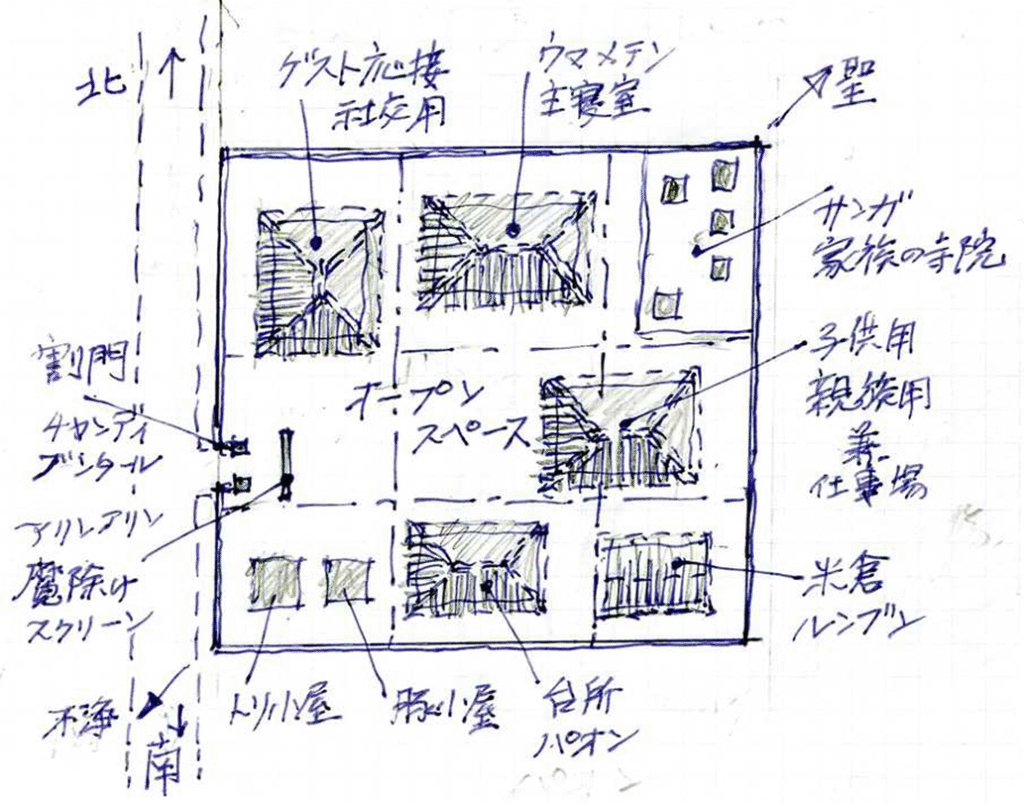 北
ゲスト応接
社交用
ウマメテン
主寝室
聖
サンガ
家族の寺院
割り門
チャンディ
ブンタール
オープン
スペース
子供用
親族用
兼
仕事場
アリンアリン
魔除け
スクリーン
米倉
ルンブン
不浄
南
トリ小屋
豚小屋
台所
パオン